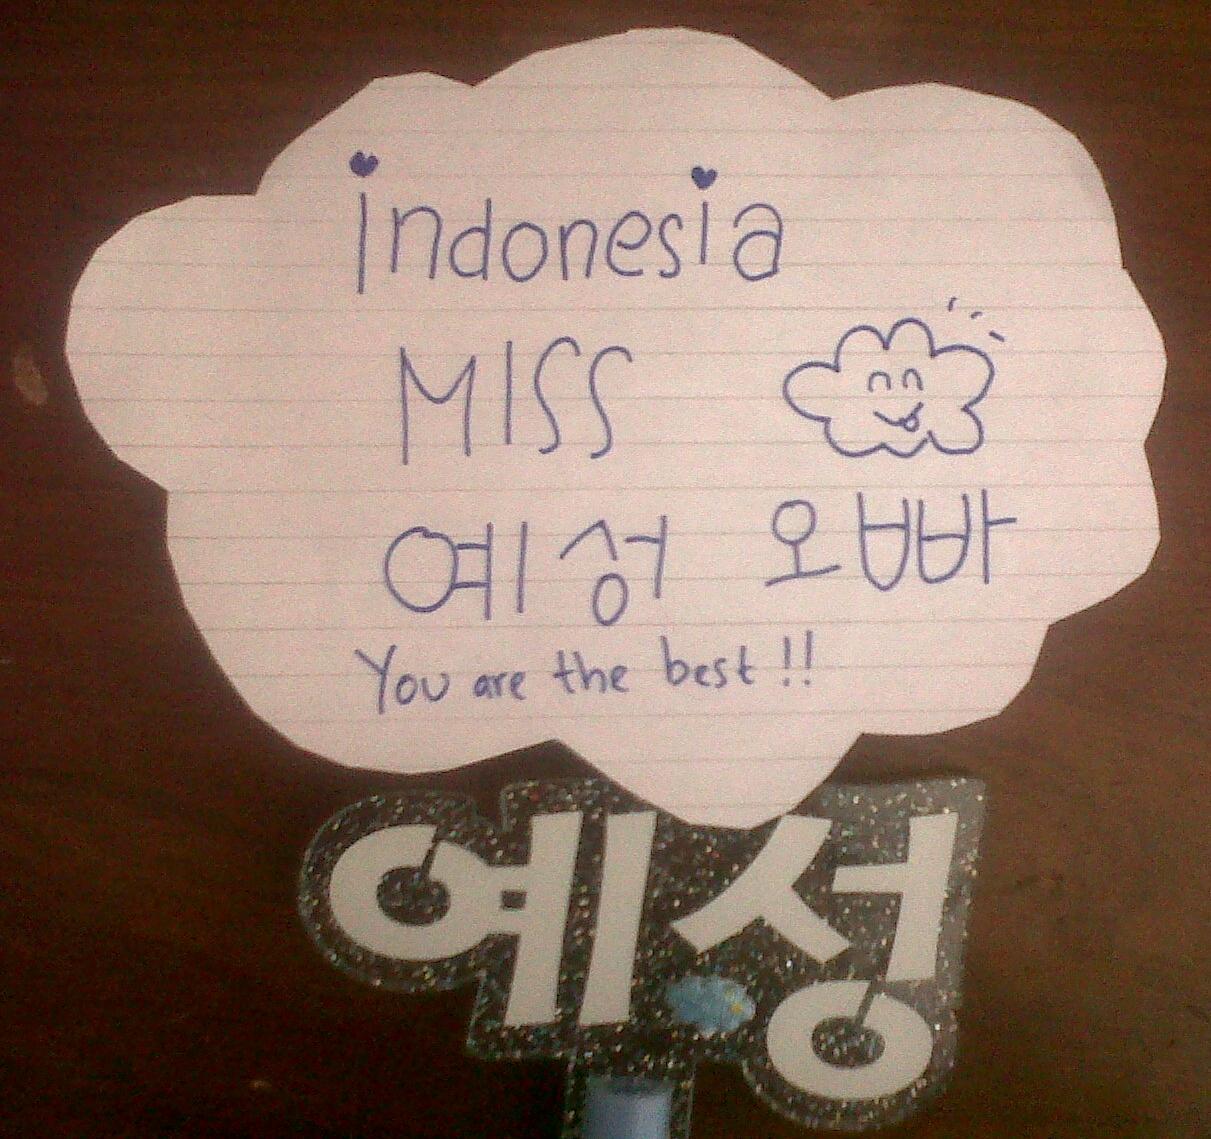 indonesia
MISS
예성 오빠
You are the best!!
예성